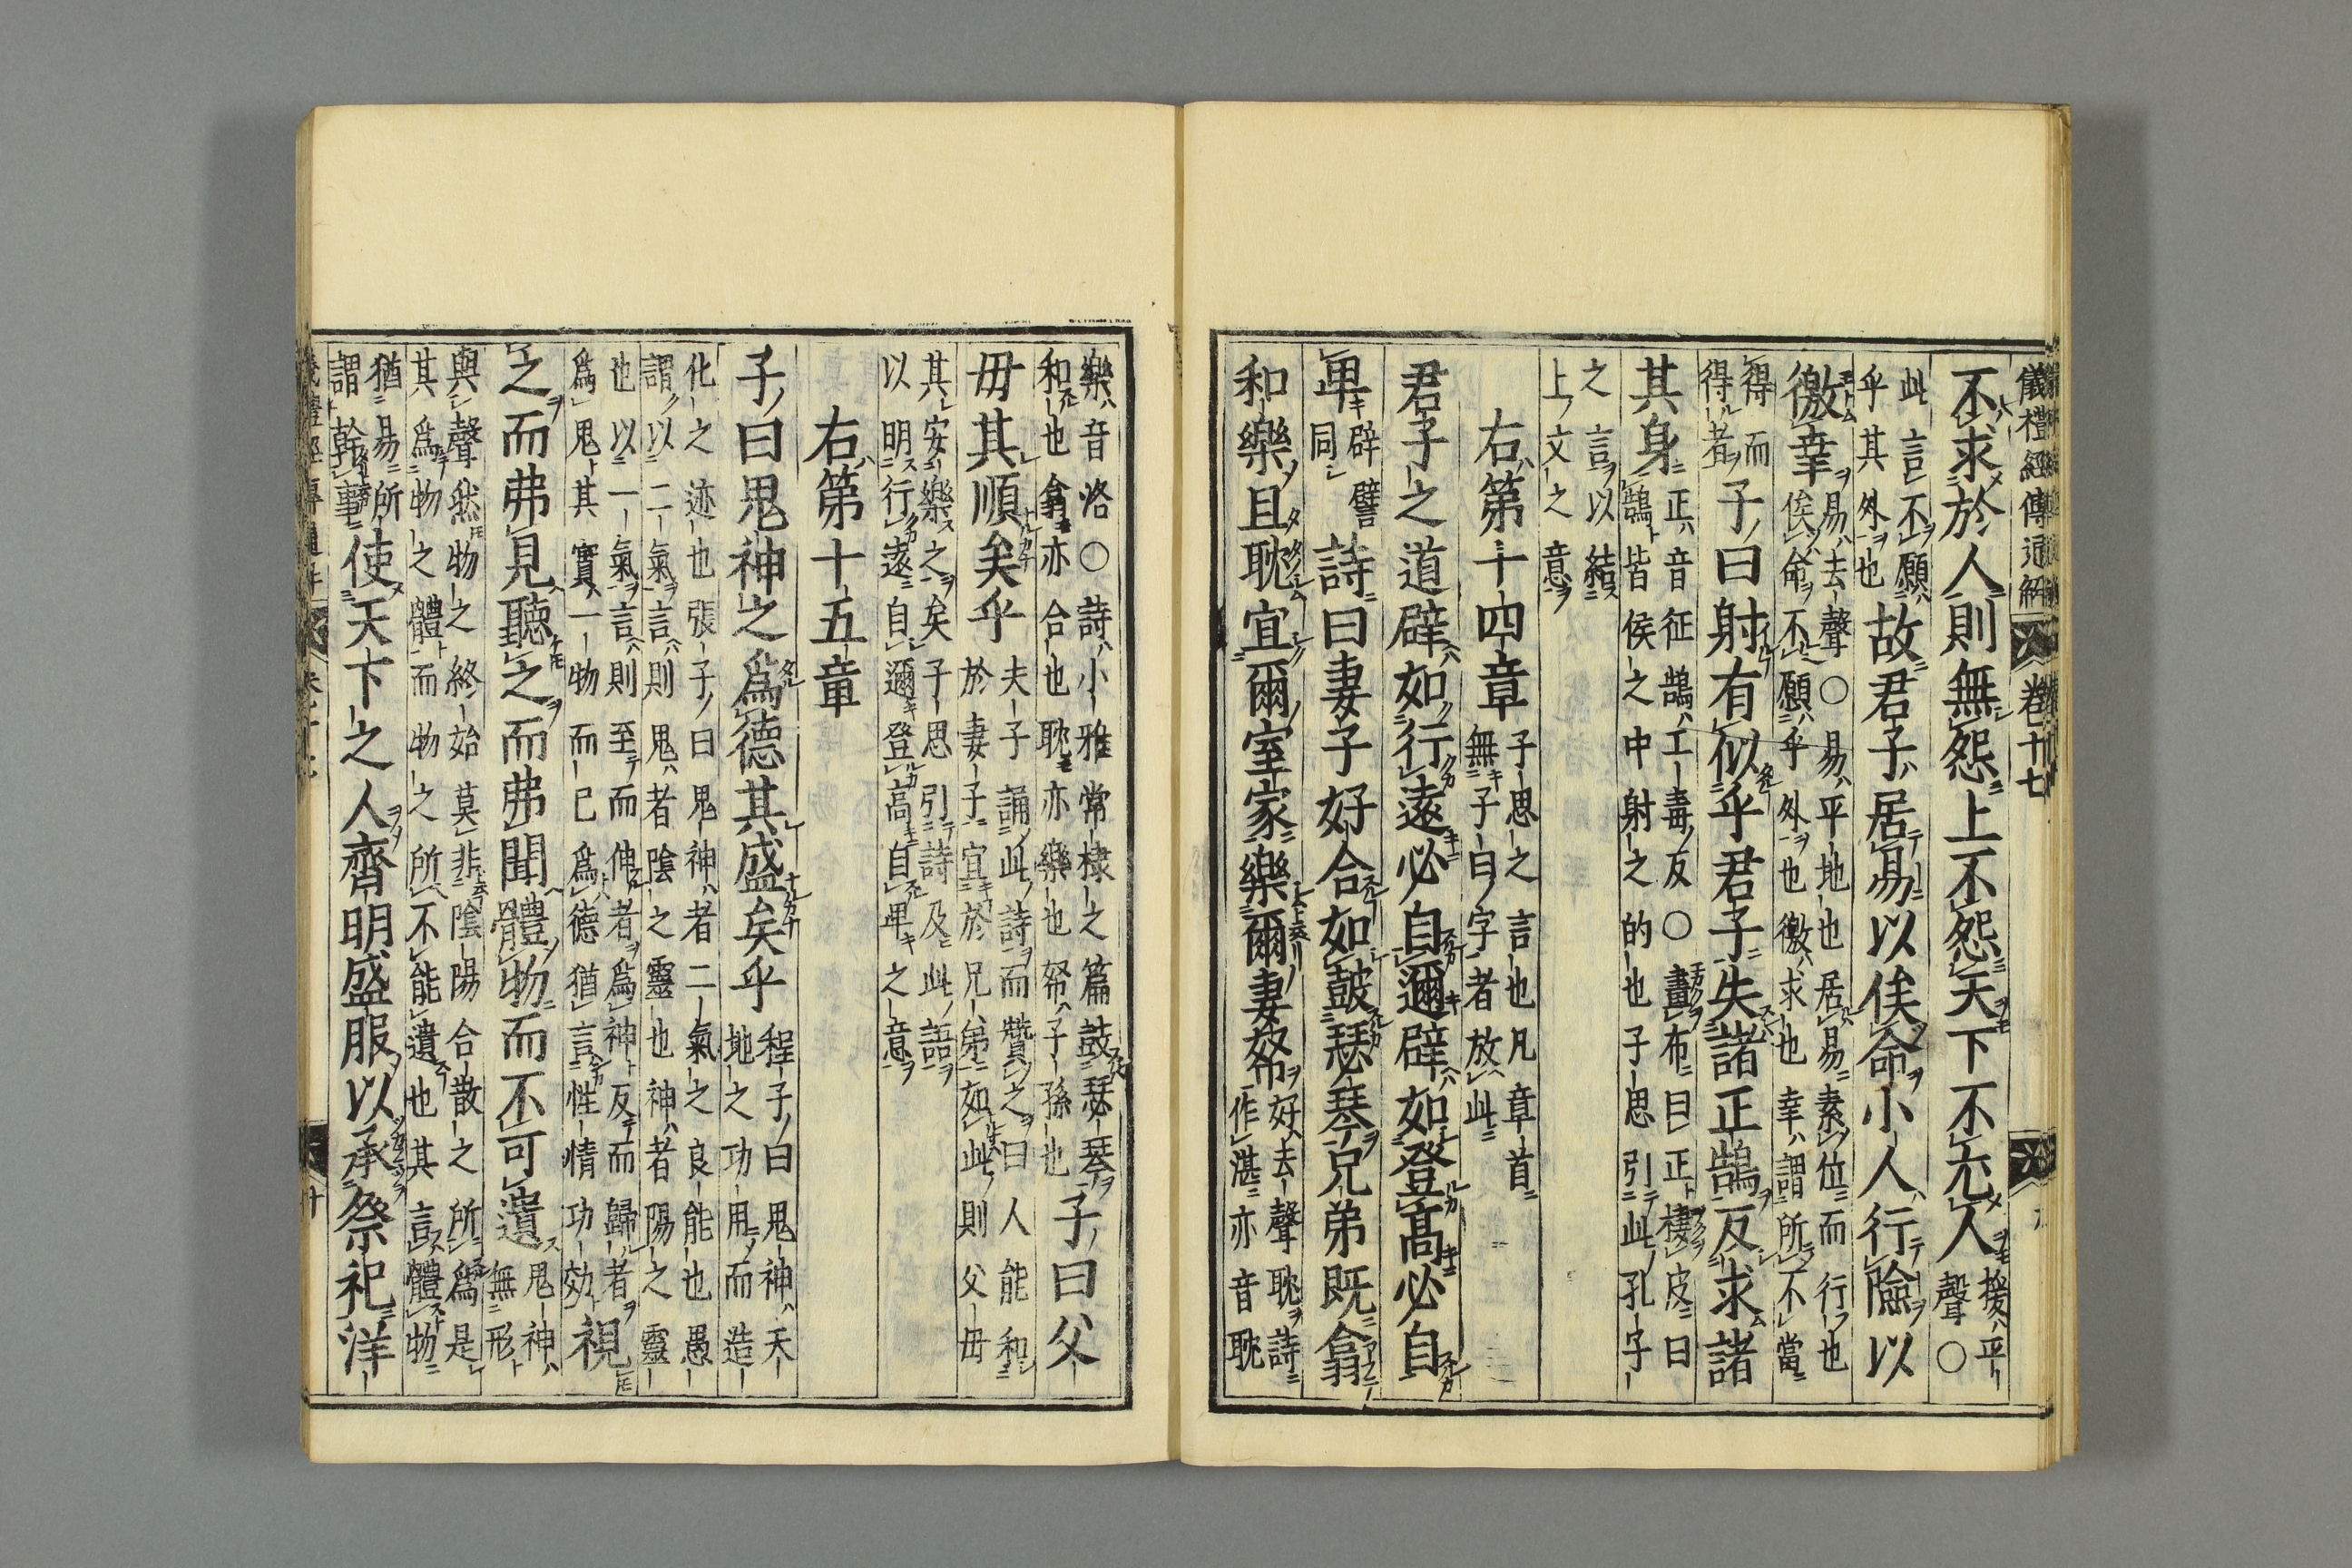 儀禮經傳通解 卷十七
不求於人則無怨上不怨天下不尤人援平
聲○
此言不願
乎其外也
故君子居易以俟命小人行險以
徼幸易去聲○易平地也居易素位而行也
俟命不願乎外也徼求也幸謂所不當
得而
得者
子曰射有似乎君子失諸正鵠反求諸
其身正音征鵠工毒反○畫布曰正棲皮曰
鵠皆侯之中射之的也子思引此孔子
之言以結
上文之意
右第十四章子思之言也凡章首
無子曰字者放此
君子之道辟如行遠必自邇辟如登高必自
卑辟譬
同
詩曰妻子好合如鼓瑟琴兄弟既翕
和樂且耽宜爾室家樂爾妻帑好去聲耽詩
作湛亦音耽
樂音洛○詩小雅常棣之篇鼓瑟琴
和也翕亦合也耽亦樂也帑子孫也
子曰父
母其順矣乎夫子誦此詩而贊之曰人能和
於妻子宜於兄弟如此則父母
其安樂之矣子思引詩及此語
以明行遠自邇登高自卑之意
右第十五章
子曰鬼神之爲德其盛矣乎程子曰鬼神天
地之功用而造
化之迹也張子曰鬼神者二氣之良能也愚
謂以二氣言則鬼者陰之靈也神者陽之靈
也以一氣言則至而伸者爲神反而歸者
爲鬼其實一物而已爲德猶言性情功効
視
之而弗見聽之而弗聞體物而不可遺鬼神
無形
與聲然物之終始莫非陰陽合散之所爲是
其爲物之體而物之所不能遺也其言體物
猶易所
謂幹事
使天下之人齊明盛服以承祭祀洋